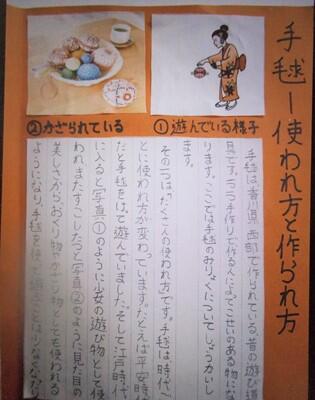 手毬ー使われ方と作られ方
①遊んでいる様子
②かざられている
手毬は香川県西部で作られている、昔の遊び道
具です。一つ一つ手作りで作る人によってこせいのある物にな
ります。ここでは手毬のみりょくについてしょうかいし
ます。
その一つは、たくさんの使われ方です。手毬は、時代ご
とに使われ方が変わっています。たとえば平安時
だと手毬をけって遊んでいました。そして江戸時代
に入ると写真①のように少女の遊び物として使
われ、またすこしたつと写真②のように見た目の
美しさから、おくり物やかざり物としても使われる
ようになり、手毬を使って遊ぶことは少なくなり